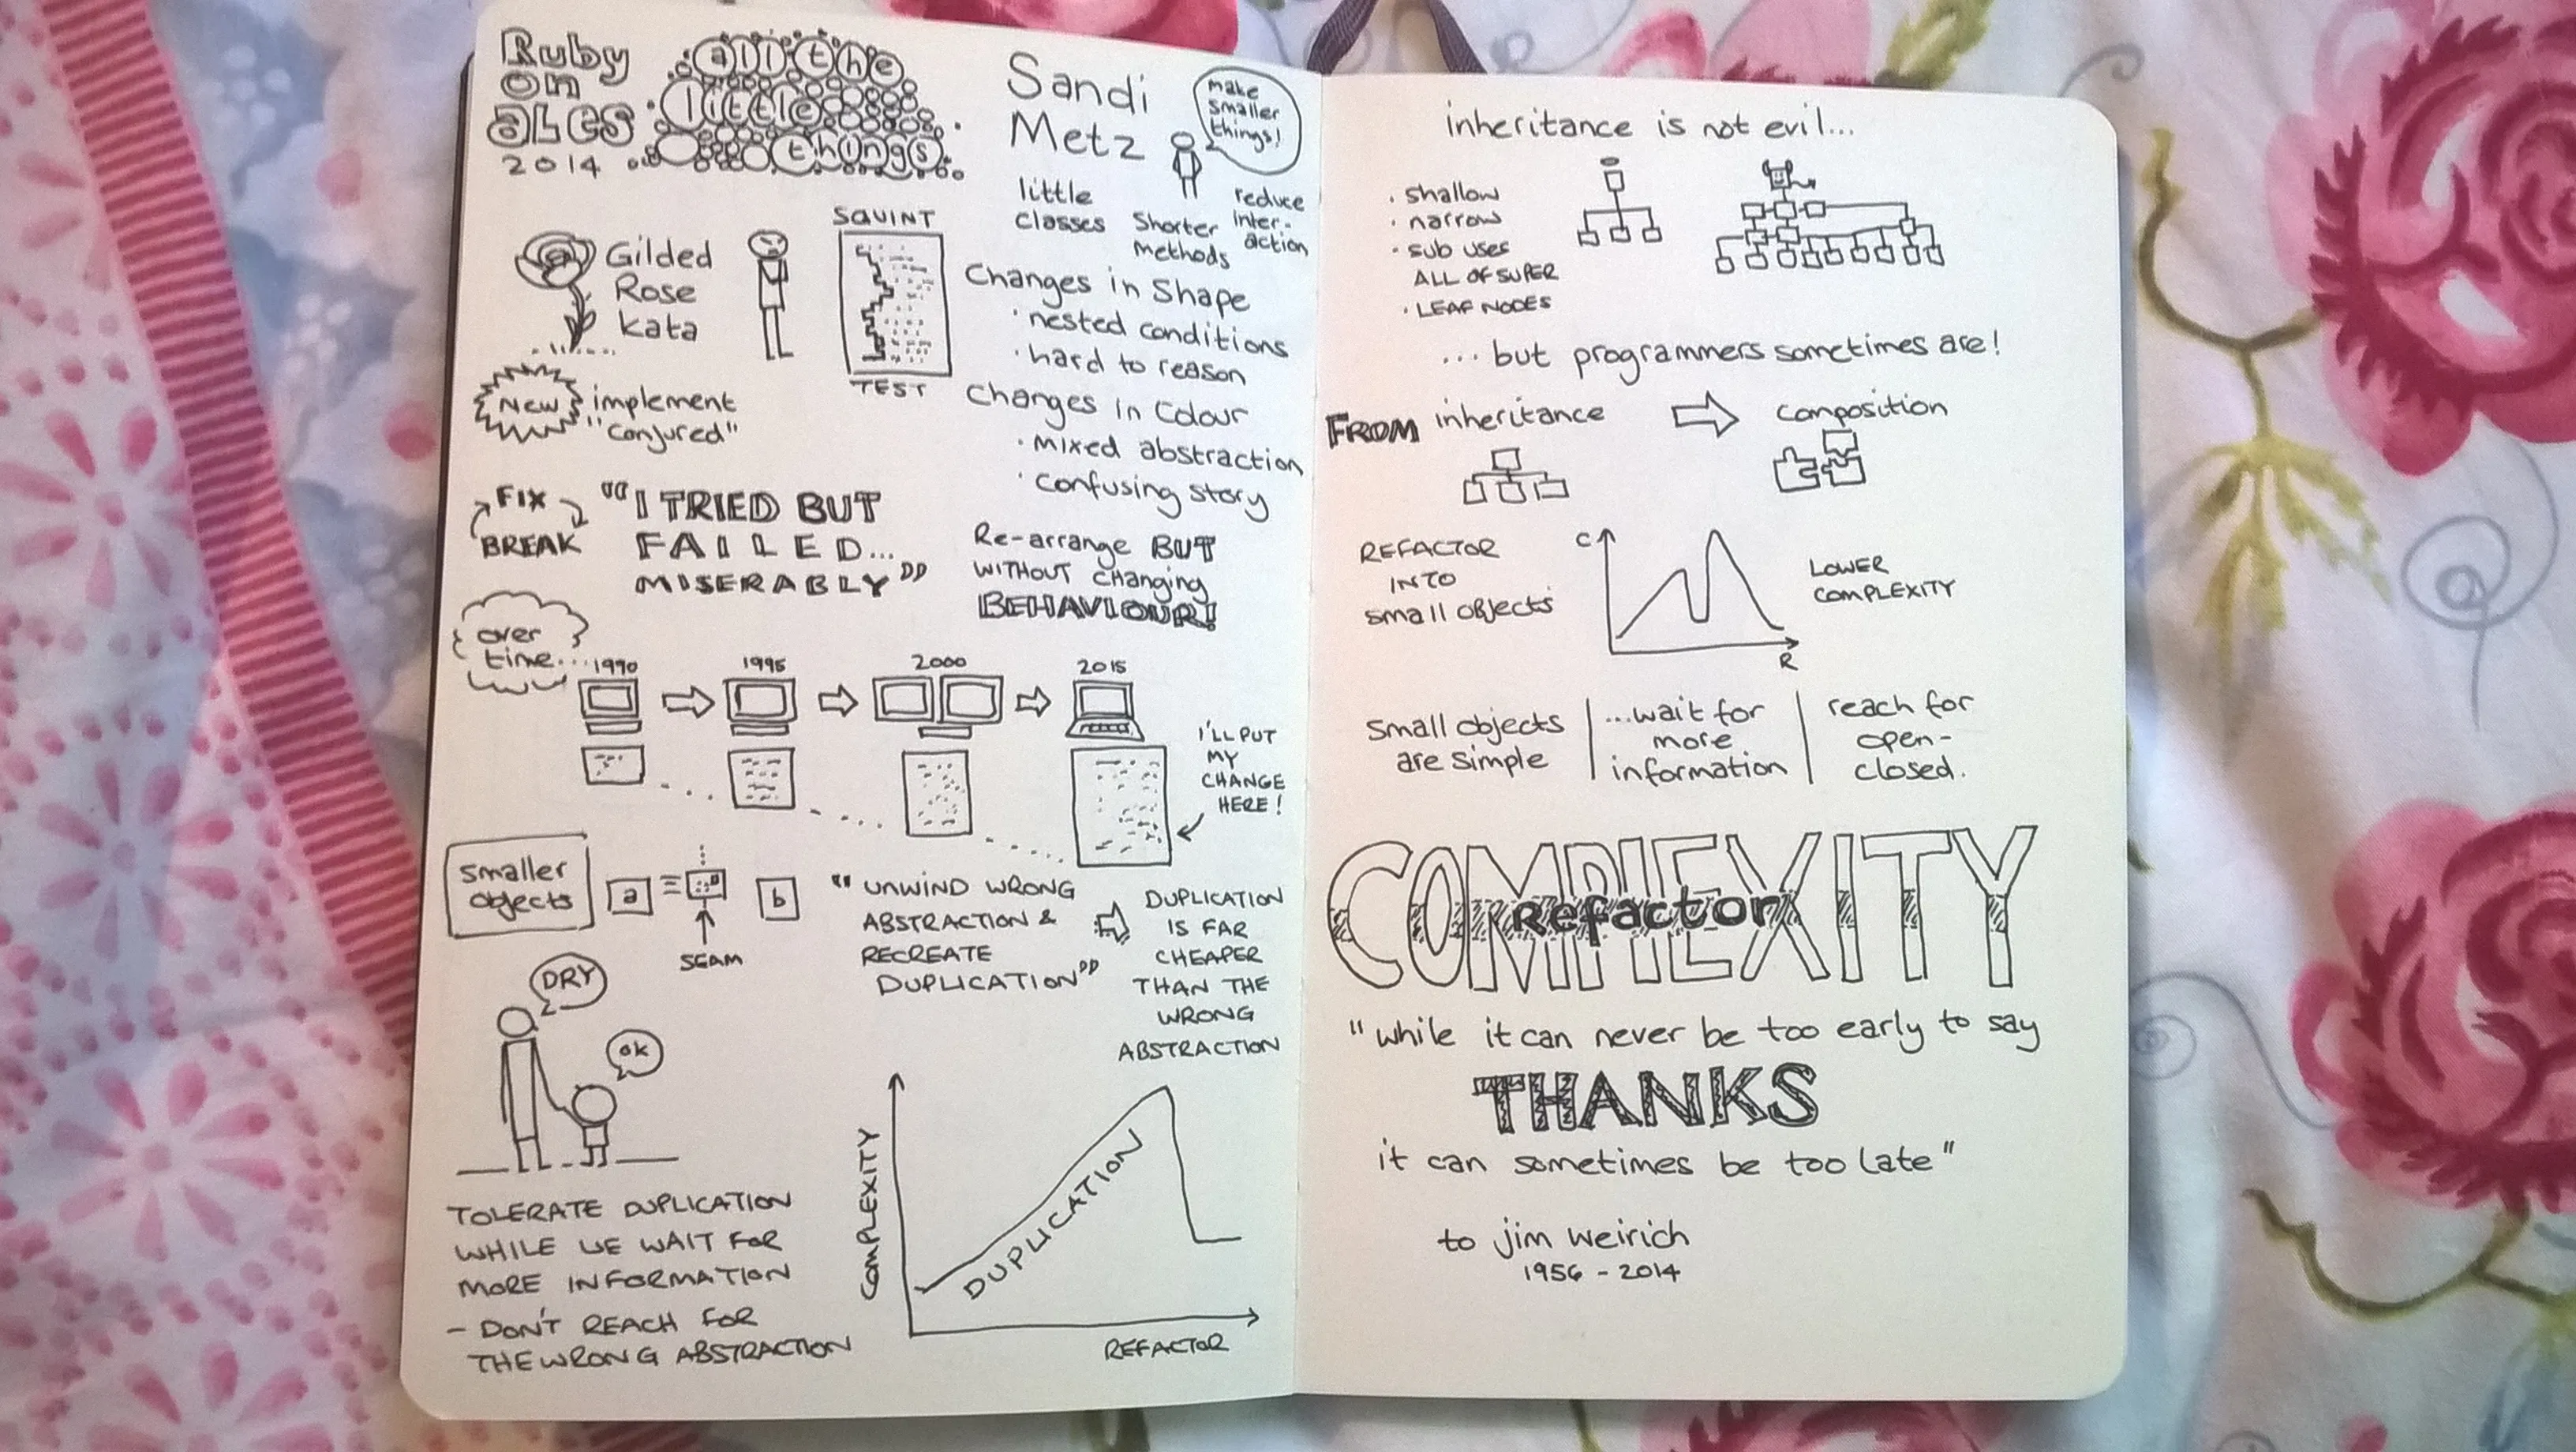 Ruby
on
ALES
2014
all the
little
things
Sandi
Metz
make
smaller
things!
little
classes
Shorter
methods
reduce
inter-
action
Gilded
Rose
kata
SQUINT
TEST
NEW
implement
"conjured"
Changes in Shape
· nested conditions
· hard to reason
Changes in Colour
· mixed abstraction
· confusing story
FIX
BREAK
"I TRIED BUT
FAILED...
MISERABLY"
Re-arrange BUT
WITHOUT changing
BEHAVIOUR!
over
time...
1990
1995
2000
2015
I'LL PUT
MY
CHANGE
HERE!
smaller
objects
a
b
SEAM
"UNWIND WRONG
ABSTRACTION &
RECREATE
DUPLICATION"
DUPLICATION
IS FAR
CHEAPER
THAN THE
WRONG
ABSTRACTION
DRY
ok
TOLERATE DUPLICATION
WHILE WE WAIT FOR
MORE INFORMATION
- DON'T REACH FOR
THE WRONG ABSTRACTION
COMPLEXITY
DUPLICATION
REFACTOR
inheritance is not evil...
· shallow
· narrow
· sub uses
ALL OF SUPER
· LEAF NODES
... but programmers sometimes are!
FROM inheritance
composition
REFACTOR
INTO
small objects
C
R
LOWER
COMPLEXITY
small objects
are simple
...wait for
more
information
reach for
open-
closed.
COMPLEXITY
Refactor
"while it can never be too early to say
THANKS
it can sometimes be too late"
to jim weirich
1956 - 2014